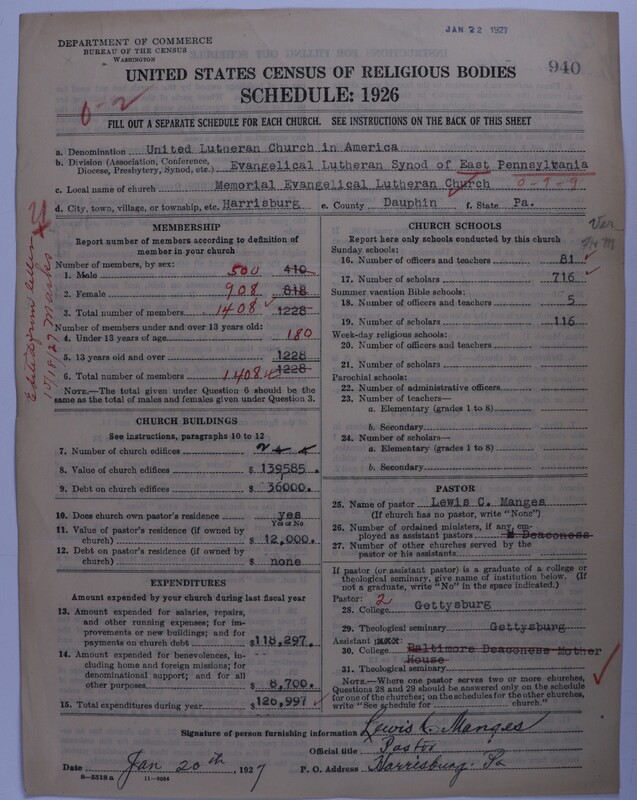 JAN 22 1927
DEPARTMENT OF COMMERCE
BUREAU OF THE CENSUS
WASHINGTON
940
UNITED STATES CENSUS OF RELIGIOUS BODIES
SCHEDULE: 1926
0-2
FILL OUT A SEPARATE SCHEDULE FOR EACH CHURCH. SEE INSTRUCTIONS ON THE BACK OF THIS SHEET
a. Denomination United Lutheran Church in America
b. Division (Association, Conference, Diocese, Presbytery, Synod, etc.) Evangelical Lutheran Synod of East Pennsylvania
c. Local name of church Memorial Evangelical Lutheran Church 0-9-9
d. City, town, village, or township, etc. Harrisburg e. County Dauphin f. State Pa.
MEMBERSHIP
Report number of members according to definition of
member in your church
Number of members, by sex:
1. Male 500 410
2. Female 908 818
3. Total number of members 1408 1228
Number of members under and over 13 years old:
4. Under 13 years of age 180
5. 13 years old and over 1228
6. Total number of members 1408 1228
NOTE.—The total given under Question 6 should be the
same as the total of males and females given under Question 3.
CHURCH BUILDINGS
See instructions, paragraphs 10 to 12
7. Number of church edifices
8. Value of church edifices $ 139585.
9. Debt on church edifices $ 36000.
10. Does church own pastor's residence yes
Yes or No
11. Value of pastor's residence (if owned by
church) $ 12,000.
12. Debt on pastor's residence (if owned by
church) $ none
EXPENDITURES
Amount expended by your church during last fiscal year
13. Amount expended for salaries, repairs,
and other running expenses; for im-
provements or new buildings; and for
payments on church debt $118,297.
14. Amount expended for benevolences, in-
cluding home and foreign missions; for
denominational support; and for all
other purposes $ 8,700.
15. Total expenditures during year $126,997
CHURCH SCHOOLS
Report here only schools conducted by this church
Sunday schools:
16. Number of officers and teachers 81
17. Number of scholars 716
Summer vacation Bible schools:
18. Number of officers and teachers 5
19. Number of scholars 116
Week-day religious schools:
20. Number of officers and teachers
21. Number of scholars
Parochial schools:
22. Number of administrative officers
23. Number of teachers—
a. Elementary (grades 1 to 8)
b. Secondary
24. Number of scholars—
a. Elementary (grades 1 to 8)
b. Secondary
PASTOR
25. Name of pastor Lewis C. Manges
(If church has no pastor, write "None")
26. Number of ordained ministers, if any, em-
ployed as assistant pastors Deaconess
27. Number of other churches served by the
pastor or his assistants
If pastor (or assistant pastor) is a graduate of a college or
theological seminary, give name of institution below. (If
not a graduate, write "No" in the space indicated.)
Pastor: 2
28. College Gettysburg
29. Theological seminary Gettysburg
Assistant
30. College Baltimore Deaconess Mother
House
31. Theological seminary
NOTE.—Where one pastor serves two or more churches,
Questions 28 and 29 should be answered only on the schedule
for one of the churches; on the schedules for the other churches,
write "See schedule for church."
Signature of person furnishing information Lewis C. Manges
Official title Pastor
Date Jan 20th, 1927 P. O. Address Harrisburg. Pa
8-5518a 11-9084